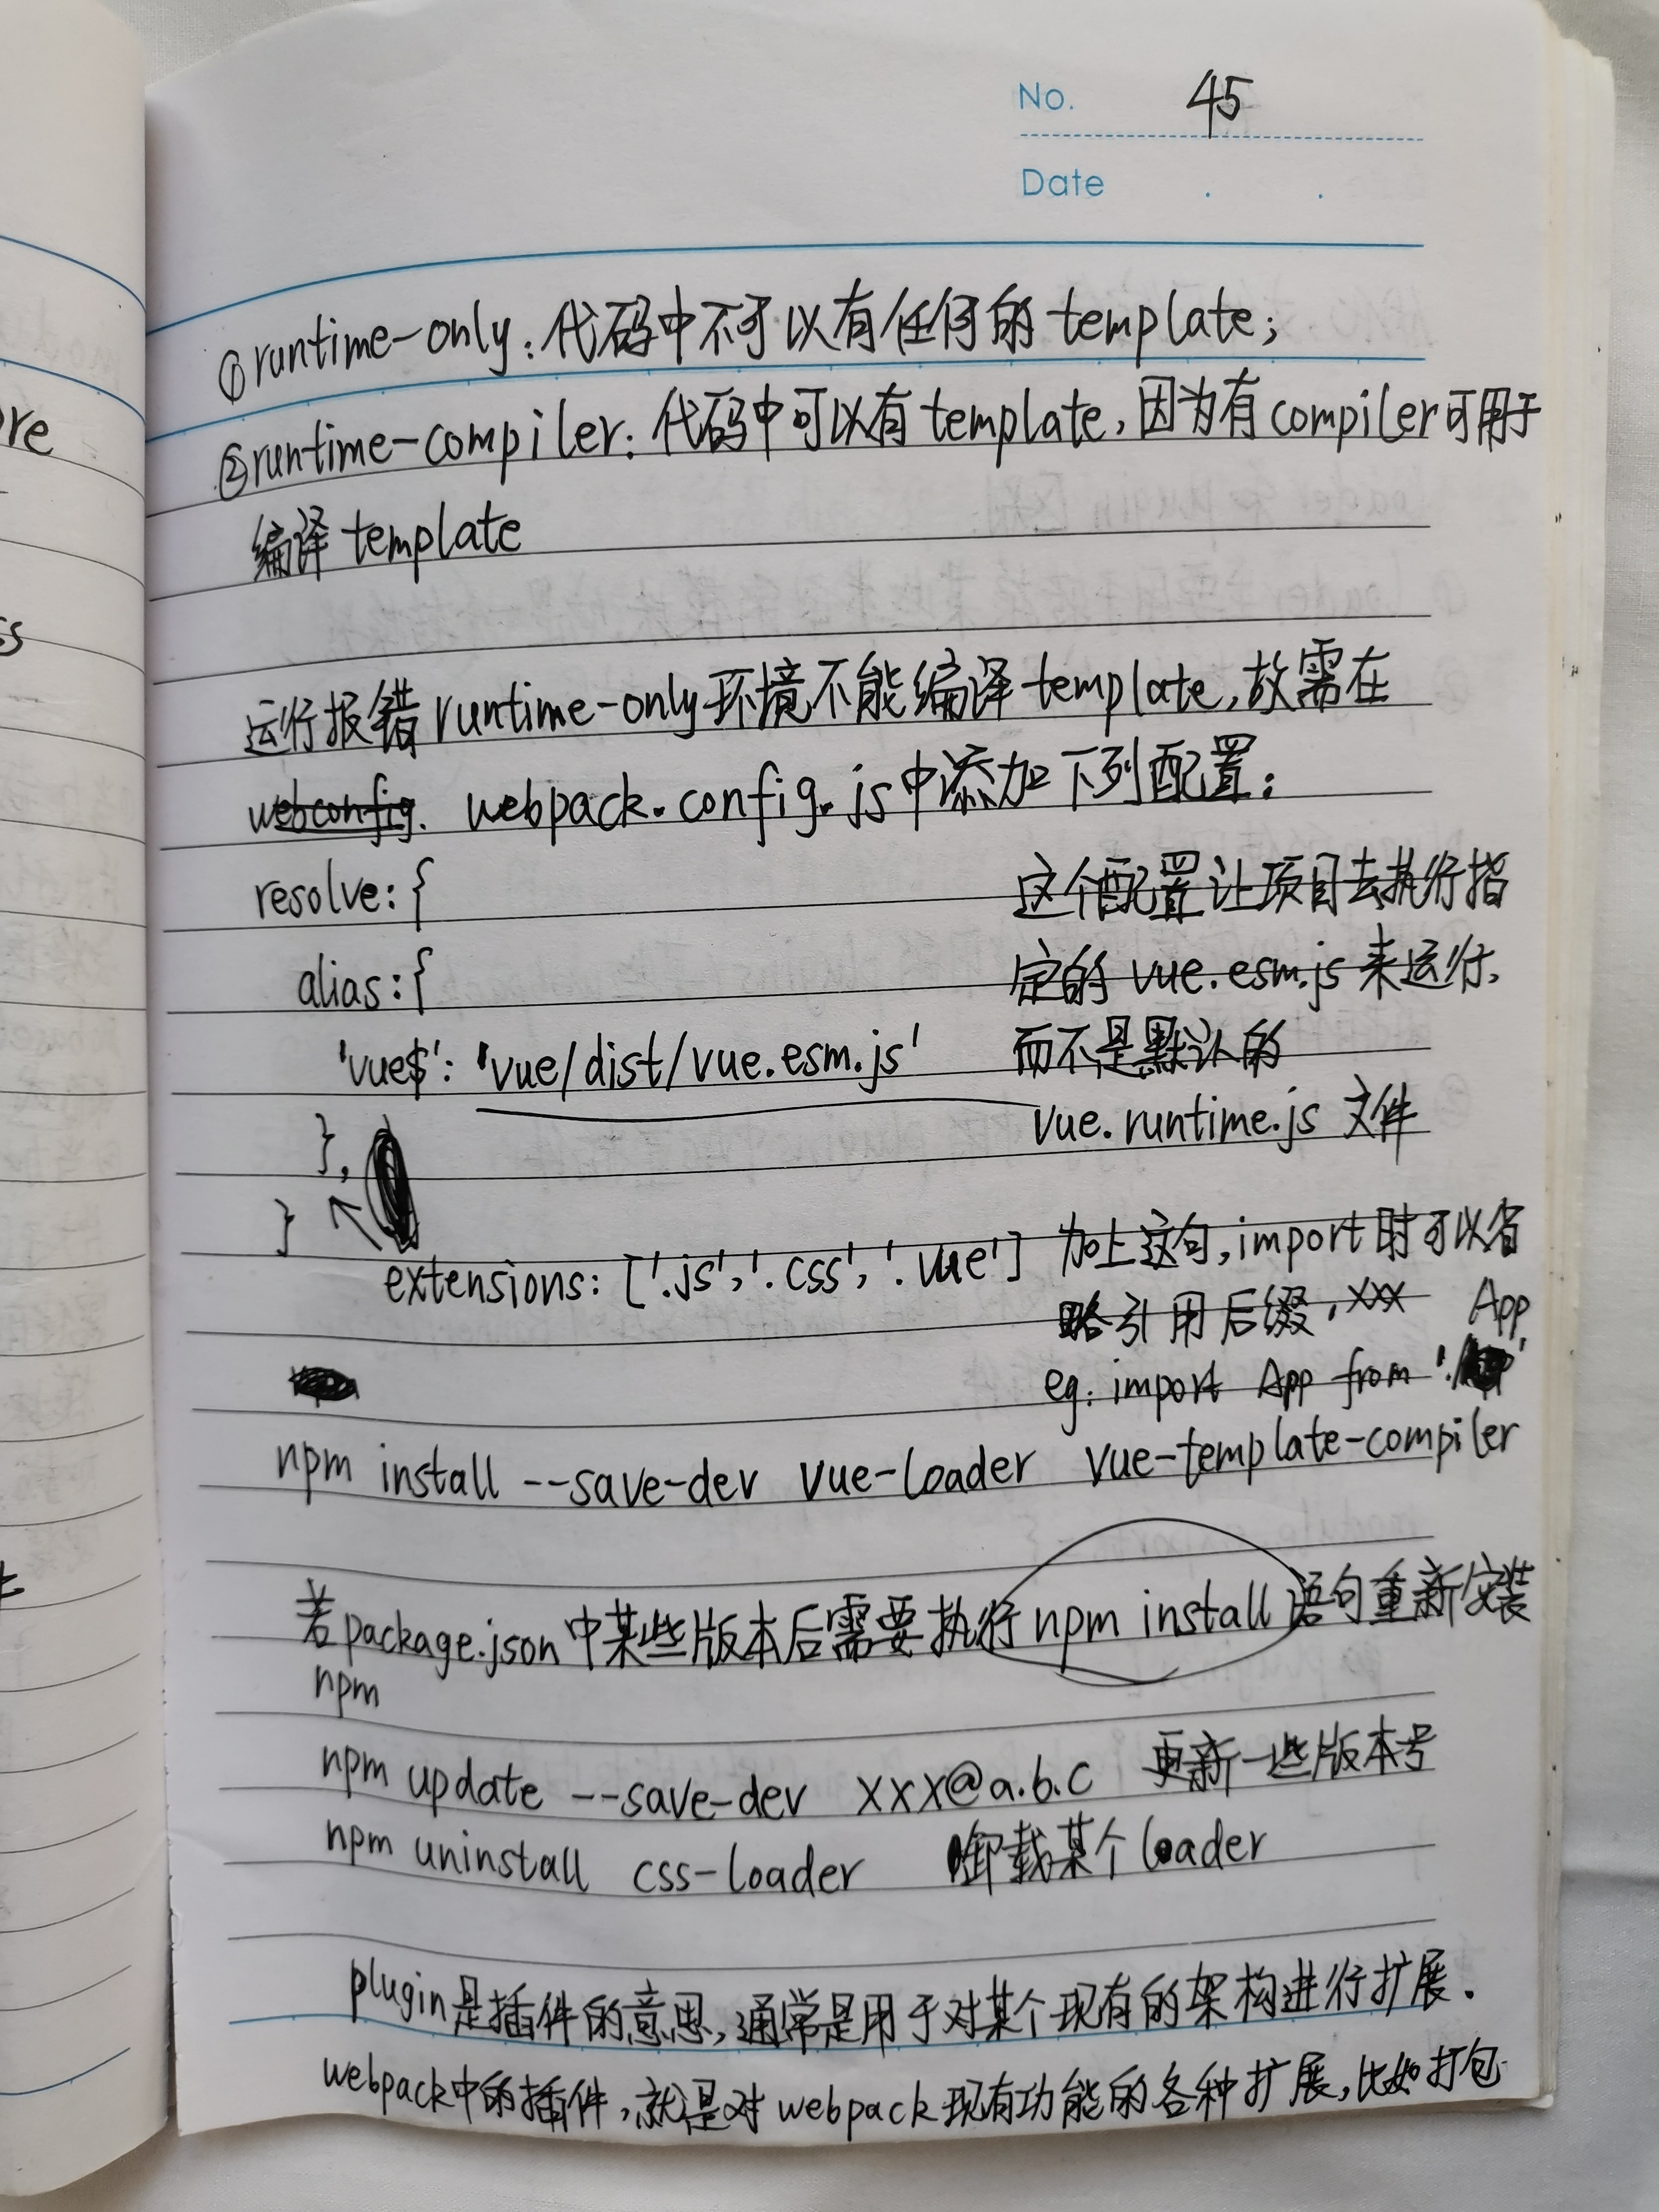 No. 45
Date . .
①runtime-only:代码中不可以有任何的template;
②runtime-compiler:代码中可以有template,因为有compiler可用于
编译template
运行报错runtime-only环境不能编译template,故需在
webconfig. webpack.config.js中添加下列配置:
resolve:{
这个配置让项目去执行指
alias:{
定的vue.esm.js来运行,
'vue$':'vue/dist/vue.esm.js'
而不是默认的
vue.runtime.js文件
},
}
extensions:['.js','.css','.vue']
加上这句,import时可以省
略引用后缀.xxx
App
eg: import App from './ '
npm install --save-dev vue-loader vue-template-compiler
若package.json中某些版本后需要执行npm install语句重新安装
npm
npm update --save-dev xxx@a.b.c 更新一些版本号
npm uninstall css-loader 卸载某个loader
plugin是插件的意思,通常是用于对某个现有的架构进行扩展.
webpack中的插件,就是对webpack现有功能的各种扩展,比如打包
re
ss